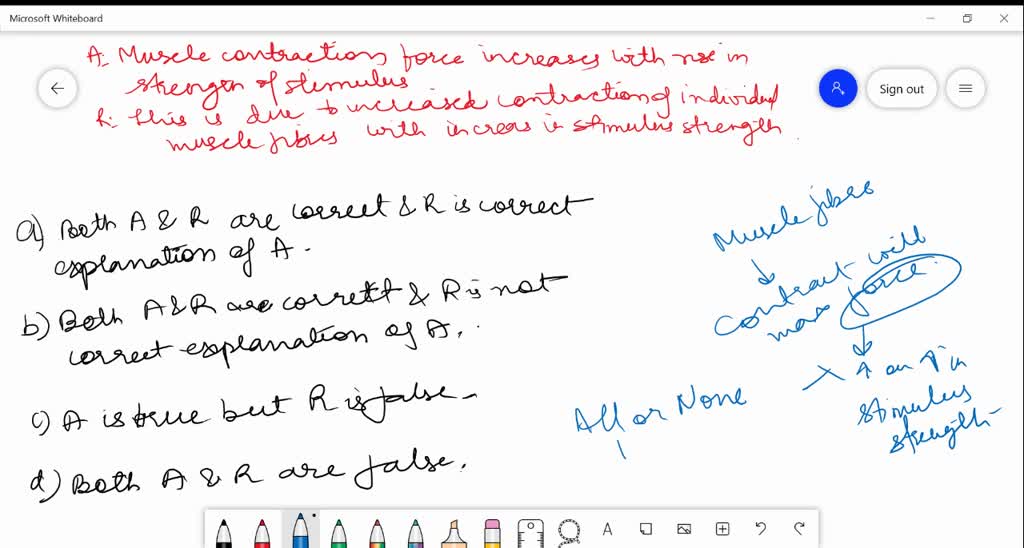 Microsoft Whiteboard
Sign out
A: Muscle contractions force increases with rise in
strength of stimulus
R: This is due to increased contraction of individual
muscle fibres with increas in stimulus strength.
a) Both A & R are correct & R is correct
explanation of A.
b) Both A & R are correct & R is not
correct explanation of A.
c) A is true but R is false.
d) Both A & R are false.
Muscle fibres
↓
Contract with
max force.
↓
X ↑ on ↑ in
stimulus
strength
All or None
A